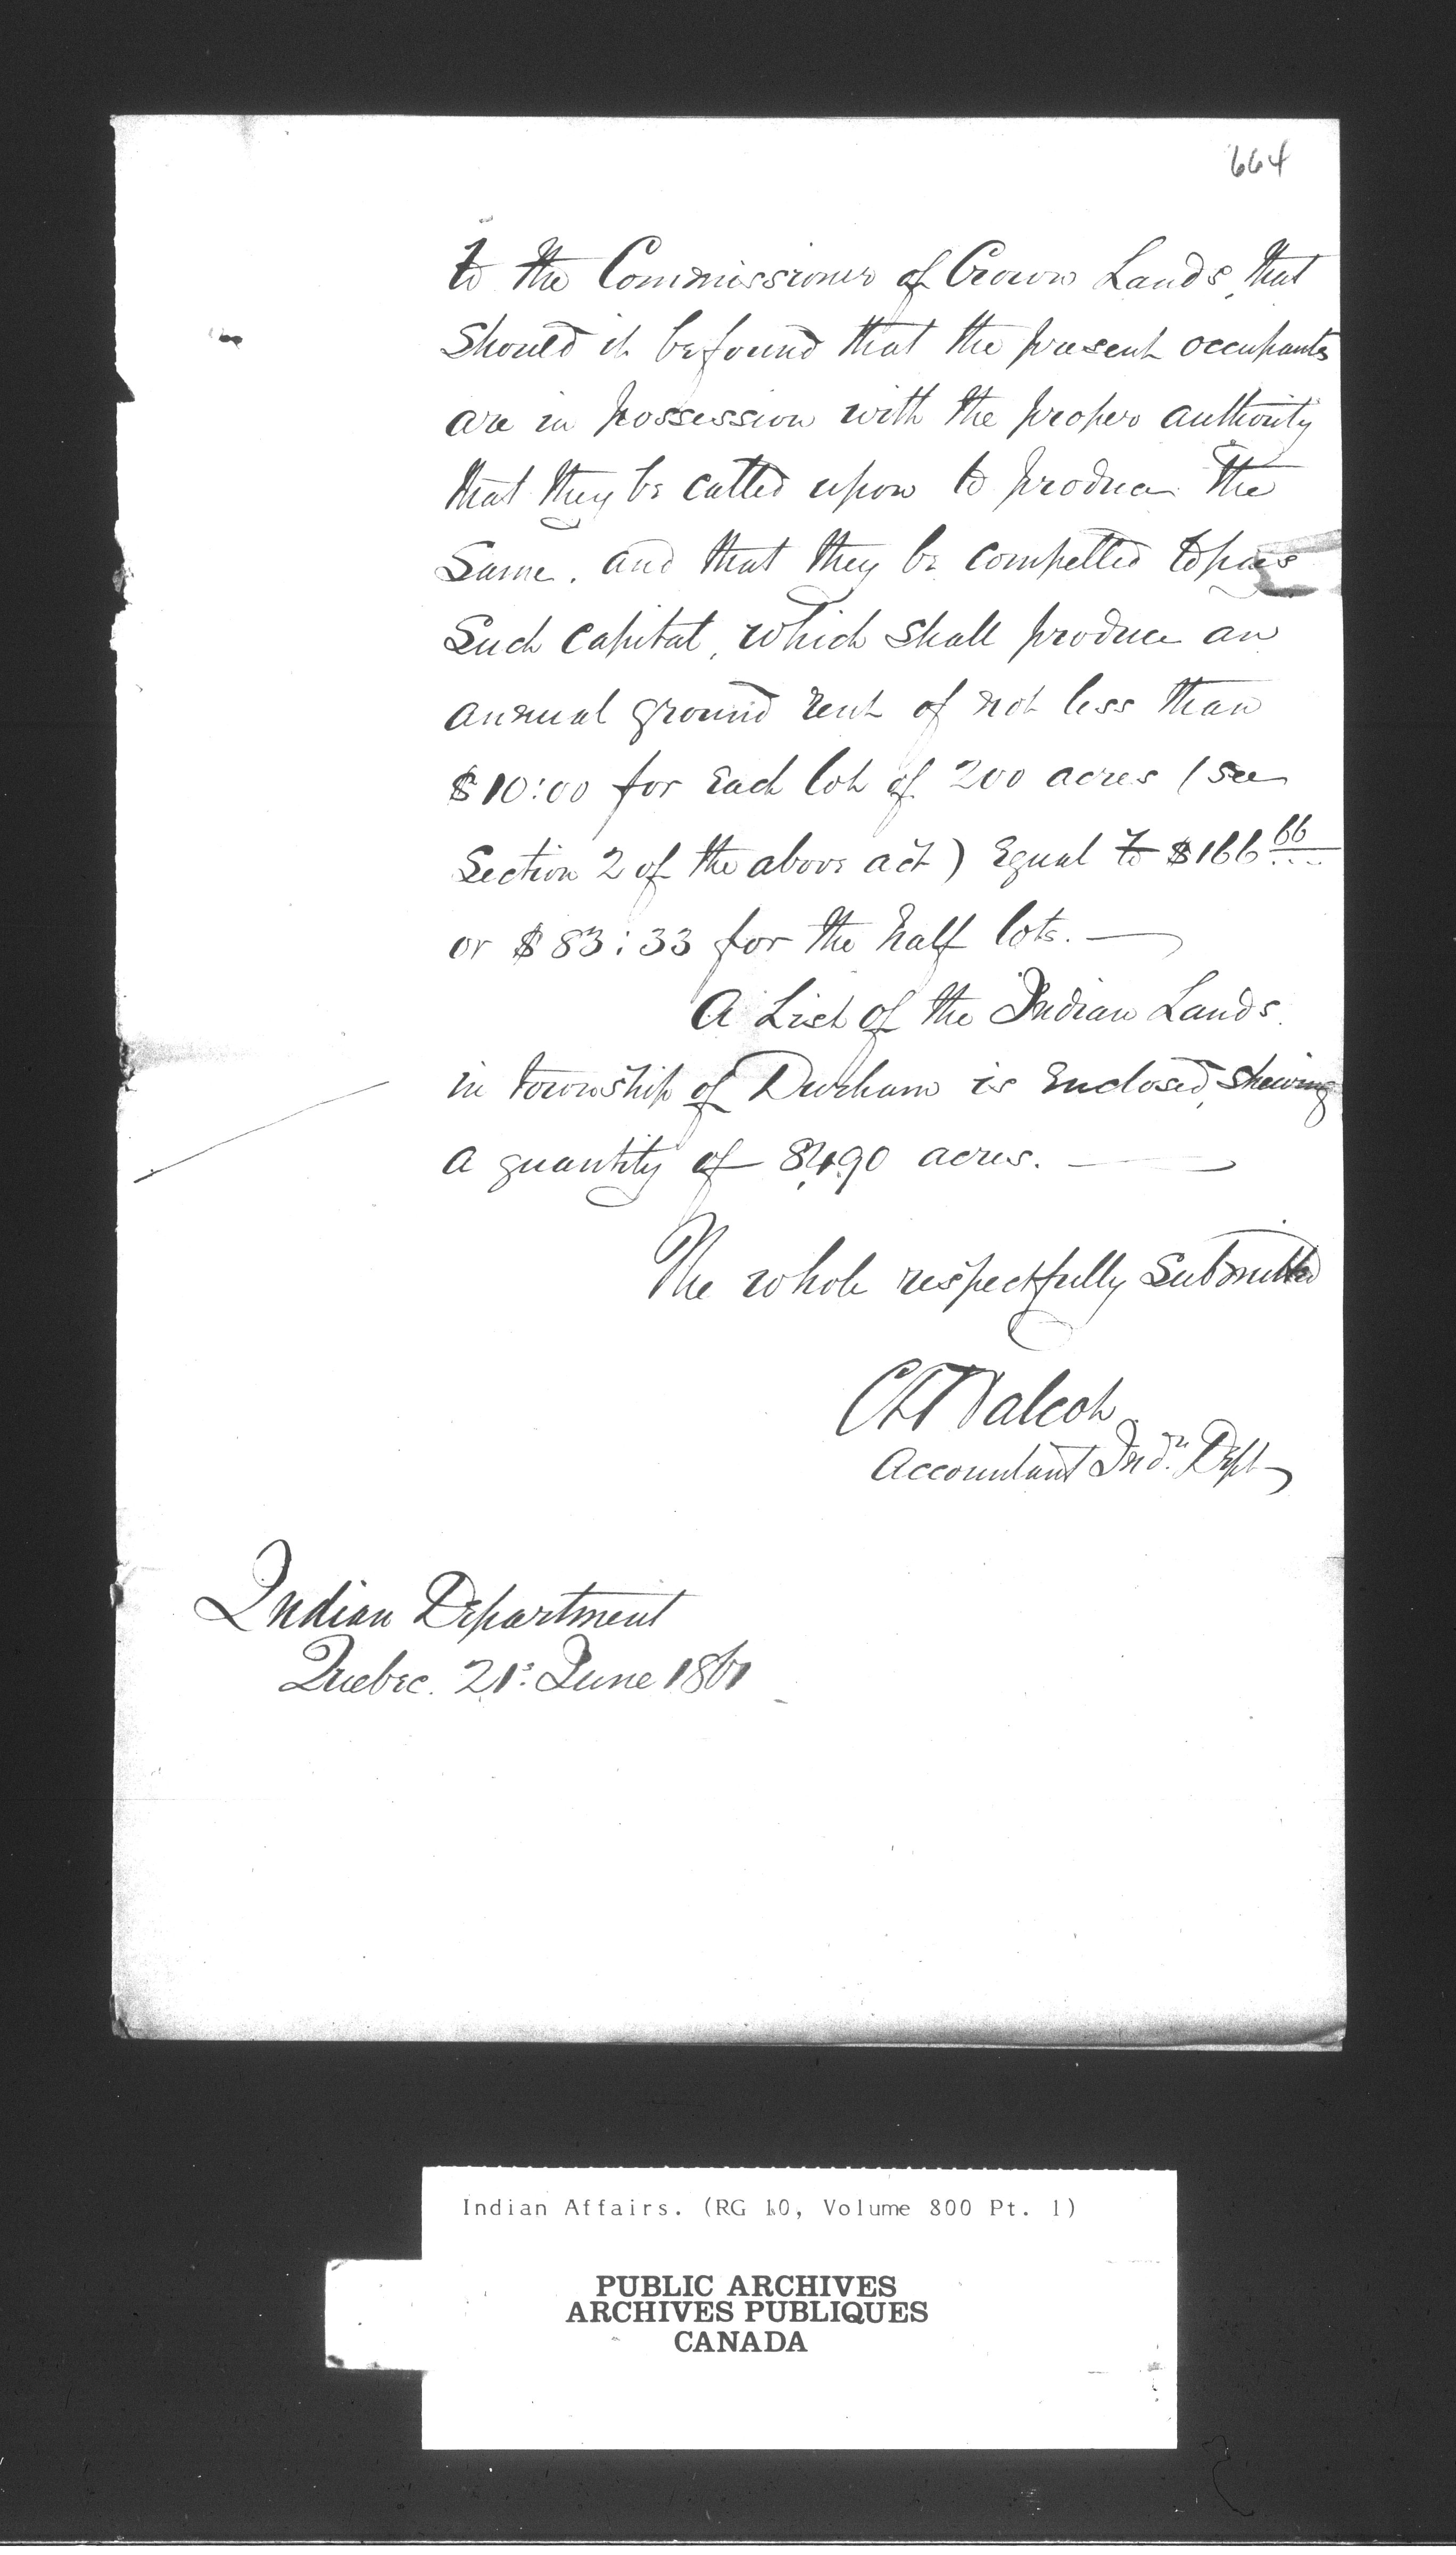 664
to the Commissioner of Crown Lands, that
Should it be found that the present occupants
are in possession with the proper authority
that they be called upon to produce the
Same. and that they be compelled to
Such capital, which shall produce an
annual ground rent of not less than
$10:00 for Each lot of 200 acres (see
Section 2 of the above act) Equal to $166 66
or $83:33 for the half lots.
A List of the Indian Lands
in township of Durham is Enclosed, shewing
a quantity of 8,490 acres.
The whole respectfully Submitted
C T Walcot
Accountant Indn. Dept
Indian Department
Quebec. 21s. June 1861
Indian Affairs. (RG 10, Volume 800 Pt. 1)
PUBLIC ARCHIVES
ARCHIVES PUBLIQUES
CANADA